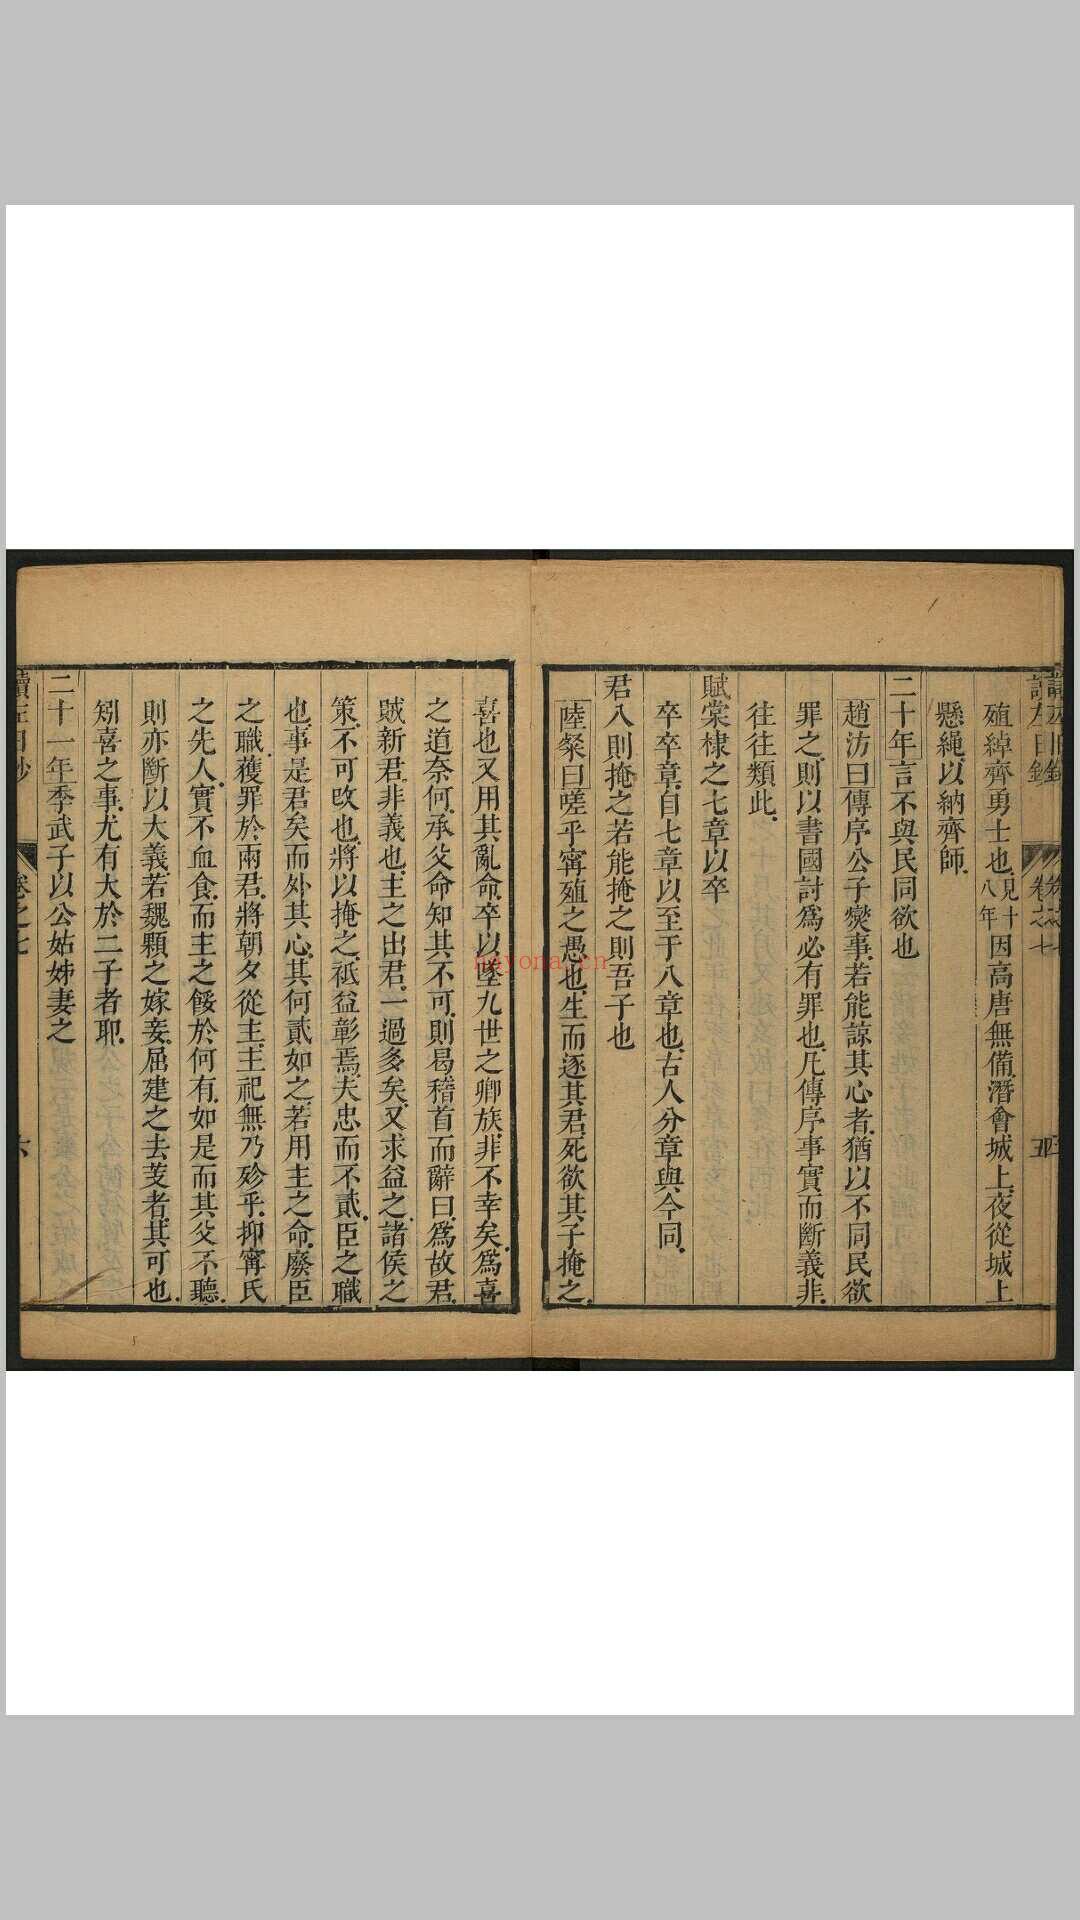 讀左日鈔
卷之七
五
殖綽齊勇士也見十八年因高唐無備潛會城上夜從城上
懸繩以納齊師
二十年言不與民同欲也
趙汸曰傳序公子燮事若能諒其心者猶以不同民欲
罪之則以書國討爲必有罪也凡傳序事實而斷義非
往往類此
賦棠棣之七章以卒
卒卒章自七章以至于八章也古人分章與今同
君入則掩之若能掩之則吾子也
陸粲曰嗟乎甯殖之愚也生而逐其君死欲其子掩之
喜也又用其亂命卒以墜九世之卿族非不幸矣爲喜
之道奈何承父命知其不可則曷稽首而辭曰爲故君
賊新君非義也主之出君一過多矣又求益之諸侯之
策不可改也將以掩之祗益彰焉夫忠而不貳臣之職
也事是君矣而外其心其何貳如之若用主之命廢臣
之職獲罪於兩君將朝夕從主主祀無乃殄乎抑甯氏
之先人實不血食而主之餒於何有如是而其父不聽
則亦斷以大義若魏顆之嫁妾屈建之去芰者其可也
矧喜之事尤有大於二子者耶
二十一年季武子以公姑姊妻之
讀左日鈔
卷之七
六
nayona.cn